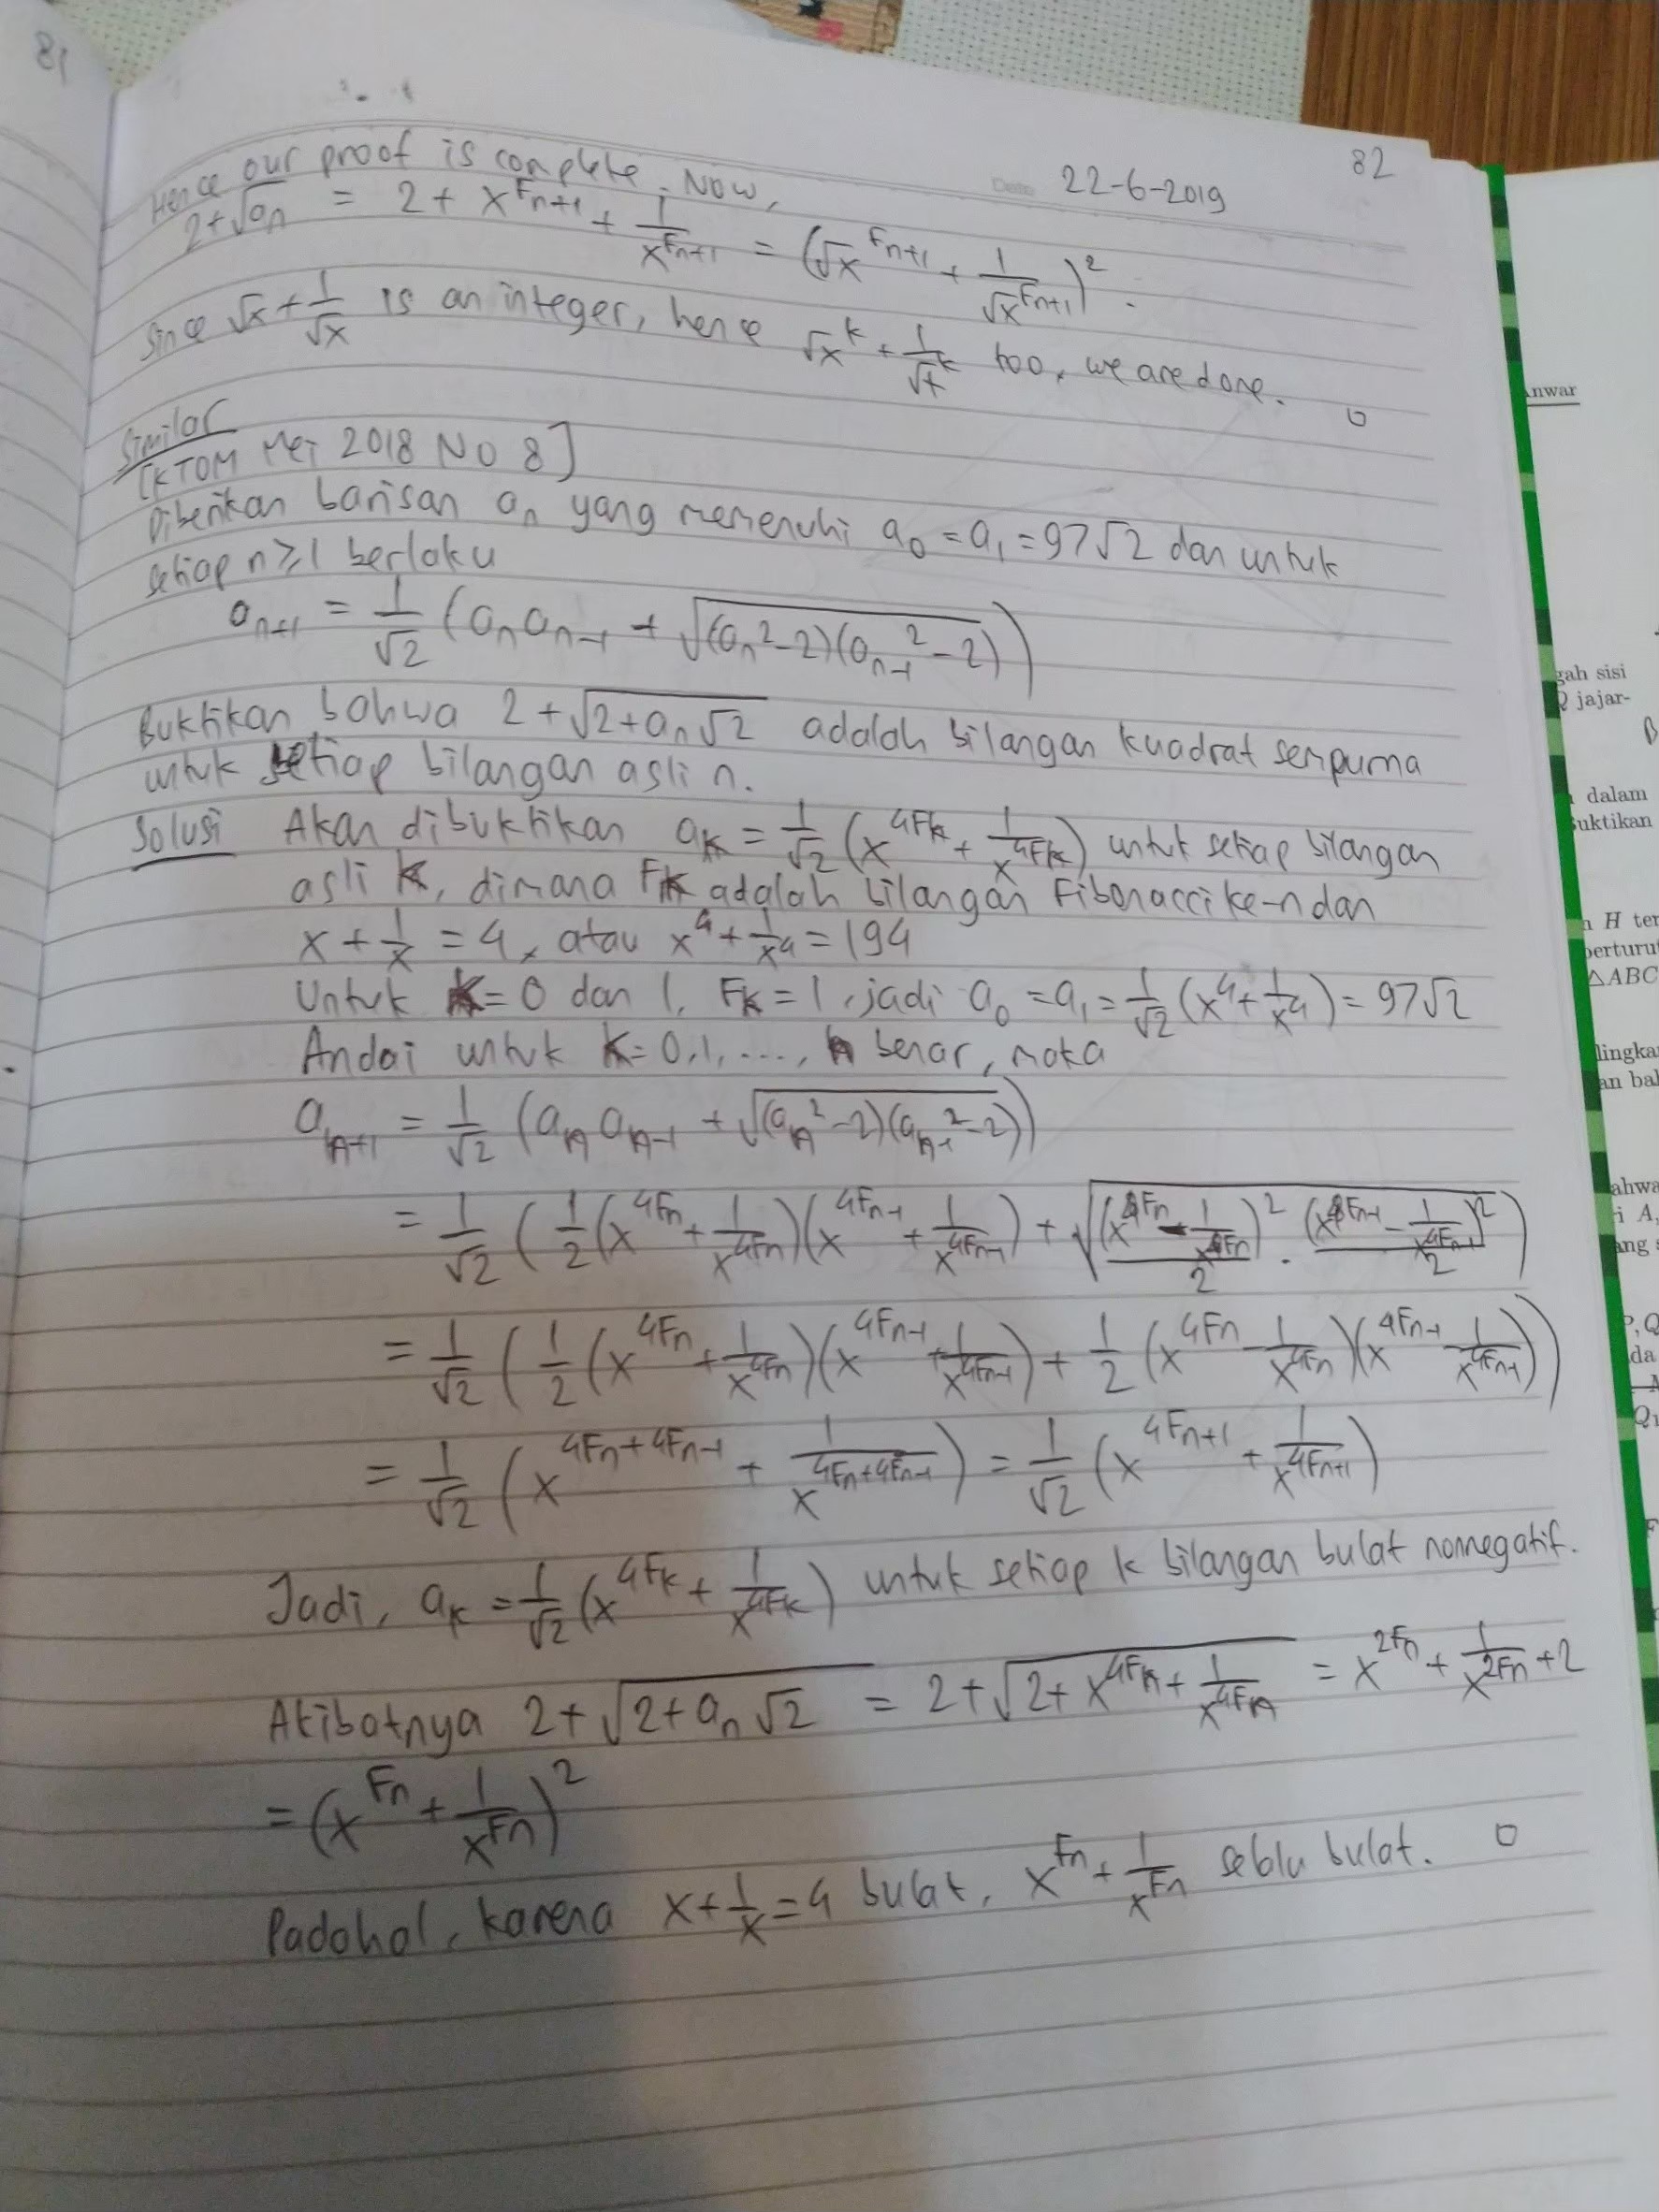 81
82
Date 22-6-2019
Hence our proof is complete. Now,
2+√a_n = 2 + x^{F_{n+1}} + 1/x^{F_{n+1}} = (√x^{F_{n+1}} + 1/√x^{F_{n+1}})².
Since √x + 1/√x is an integer, hence √x^k + 1/√x^k too, we are done. □
Similar
[KTOM Mei 2018 NO 8]
Diberikan barisan a_n yang memenuhi a_0 = a_1 = 97√2 dan untuk
setiap n ≥ 1 berlaku
a_{n+1} = 1/√2 (a_n a_{n-1} + √((a_n² - 2)(a_{n-1}² - 2)))
Buktikan bahwa 2+√(2+a_n√2) adalah bilangan kuadrat sempurna
untuk setiap bilangan asli n.
Solusi Akan dibuktikan a_k = 1/√2 (x^{4F_k} + 1/x^{4F_k}) untuk setiap bilangan
asli k, dimana F_k adalah bilangan Fibonacci ke-n dan
x + 1/x = 4, atau x^4 + 1/x^4 = 194
Untuk k = 0 dan 1, F_k = 1, jadi a_0 = a_1 = 1/√2 (x^4 + 1/x^4) = 97√2
Andai untuk k = 0,1, ...., n benar, maka
a_{n+1} = 1/√2 (a_n a_{n-1} + √((a_n² - 2)(a_{n-1}² - 2)))
= 1/√2 (1/2 (x^{4F_n} + 1/x^{4F_n})(x^{4F_{n-1}} + 1/x^{4F_{n-1}}) + √((x^{4F_n} - 1/x^{4F_n})²/2 . (x^{4F_{n-1}} - 1/x^{4F_{n-1}})²/2))
= 1/√2 (1/2 (x^{4F_n} + 1/x^{4F_n})(x^{4F_{n-1}} + 1/x^{4F_{n-1}}) + 1/2 (x^{4F_n} - 1/x^{4F_n})(x^{4F_{n-1}} - 1/x^{4F_{n-1}}))
= 1/√2 (x^{4F_n+4F_{n-1}} + 1/x^{4F_n+4F_{n-1}}) = 1/√2 (x^{4F_{n+1}} + 1/x^{4F_{n+1}})
Jadi, a_k = 1/√2 (x^{4F_k} + 1/x^{4F_k}) untuk setiap k bilangan bulat nonnegatif.
Akibatnya 2+√(2+a_n√2) = 2+√(2+x^{4F_n} + 1/x^{4F_n}) = x^{2F_n} + 1/x^{2F_n} + 2
= (x^{F_n} + 1/x^{F_n})²
Padahal, karena x + 1/x = 4 bulat, x^{F_n} + 1/x^{F_n} seblu bulat. □
Anwar
gah sisi
jajar-
dalam
buktikan
H ter
berturu
△ABC
lingka
an bal
ahwa
i A,
ang s
P, Q
da